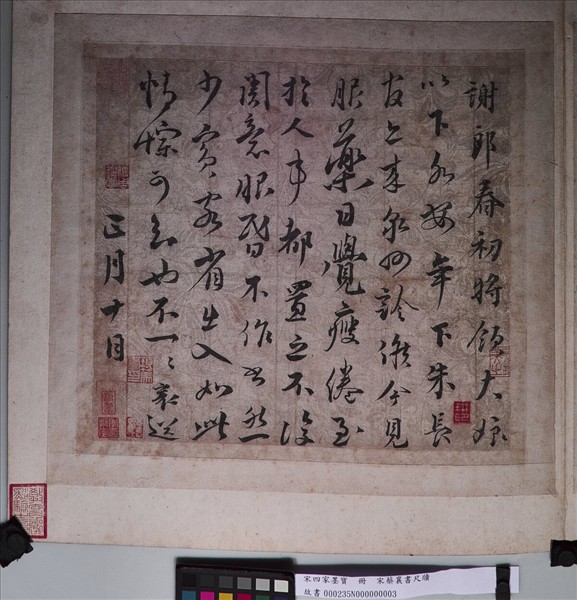 謝郎春初將領大娘
以下各安年下朱長
官亦來泉州診候今見
服藥日覺瘦倦至
於人事都置之不復
關意眼昏不作書然
少賓客省出入如此
情悰可知也不一一襄送
正月十日
宋四家墨寶 冊 宋蔡襄書尺牘
故書000235N000000003